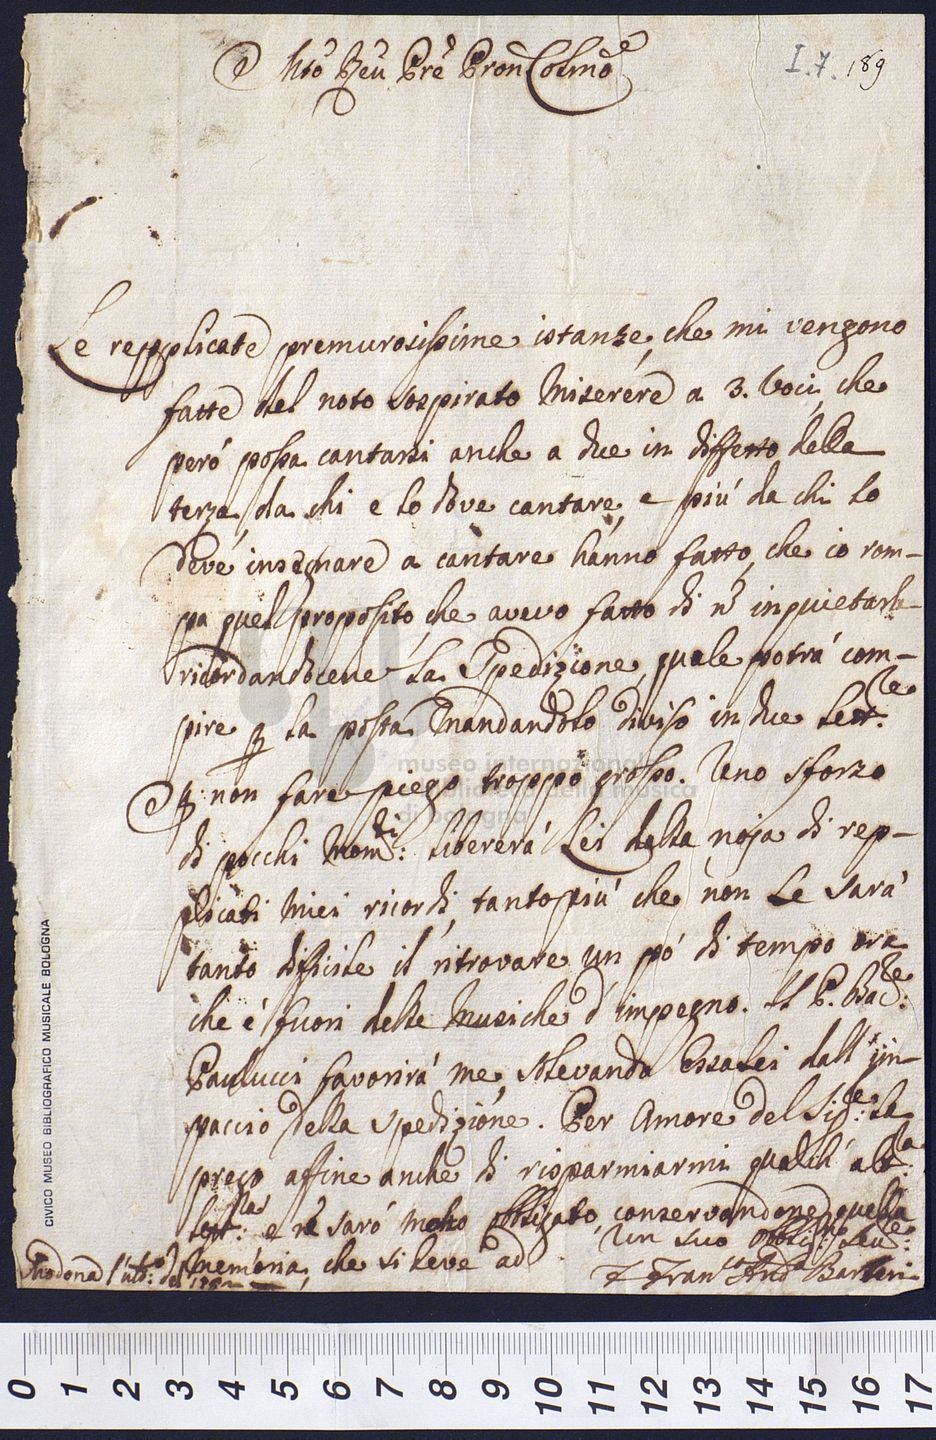 Mto Reu Pre Pron Colmo
I.7. 189
Le repplicate premurosissime istanze, che mi vengono
fatte del noto sospirato Miserere a 3. Voci, che
peró possa cantarsi anche a due in diffetto della
terza, da chi e lo deve cantare, e piú da chi lo
deve insegnare a cantare hanno fatto, che io rom-
pa quel proposito, che avevo fatto di n inquietarla
ricordandocene la Spedizione, quale potrá com-
pire p la posta, mandandolo diviso in due lettre
p non fare piego troppo grosso. Uno sforzo
di pocchi momti: libererá Lei della noja di rep-
plicati miei ricordi, tantopiú che non le sará
tanto difficile il ritrovare un pó di tempo ora
che é fuori delle Musiche d'impegno. Il P. Bacre:
Paulucci favorirá me, sollevando Essa Lei dall' im-
paccio della spedizione. Per Amore del Sige: La
prego affine anche di risparmiarmi qualch' altra:
lettra: e ne saró molto obbligato, conservandone quella
memoria, che si deve ad
Un suo obbligmo Serve:
F Franco Anto Barbieri
Modona
CIVICO MUSEO BIBLIOGRAFICO MUSICALE BOLOGNA
museo internazionale
e biblioteca della musica
di bologna
0 1 2 3 4 5 6 7 8 9 10 11 12 13 14 15 16 17